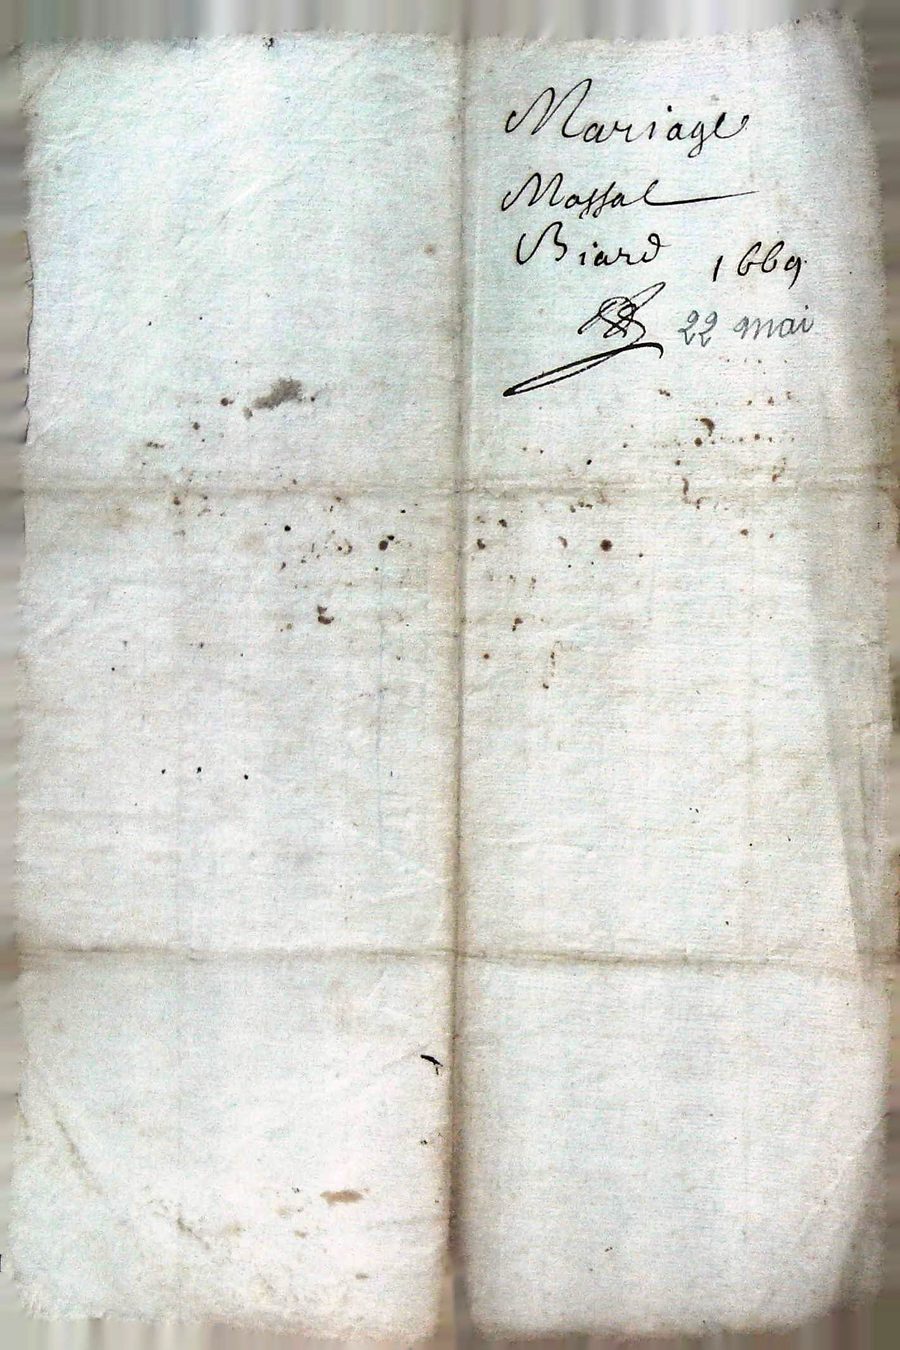 Mariage
Massal
Biard 1669
22 mai